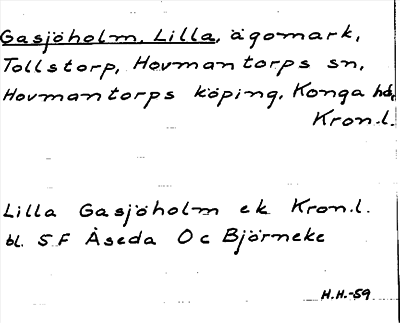 Gasjöholm, Lilla, ägomark,
Tollstorp, Hovmantorps sn,
Hovmantorps köping, Konga hd,
Kron.l.
Lilla Gasjöholm ek Kron.l.
bl. 5 F Åseda O c Björneke
H.H.-59